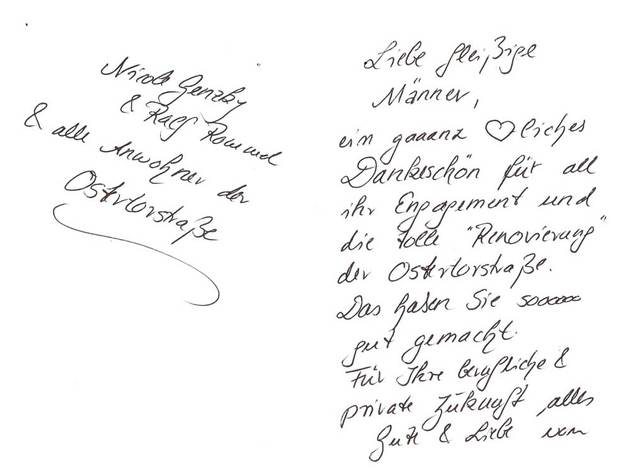 Liebe fleißige
Männer,
ein gaaanz ♡liches
Dankeschön für all
ihr Engagement und
die tolle "Renovierung"
der Ostertorstraße.
Das haben Sie sooooo
gut gemacht.
Für Ihre berufliche &
private Zukunft alles
Gute & Liebe von
Nicole
& Ralf
& alle Anwohner der
Ostertorstraße